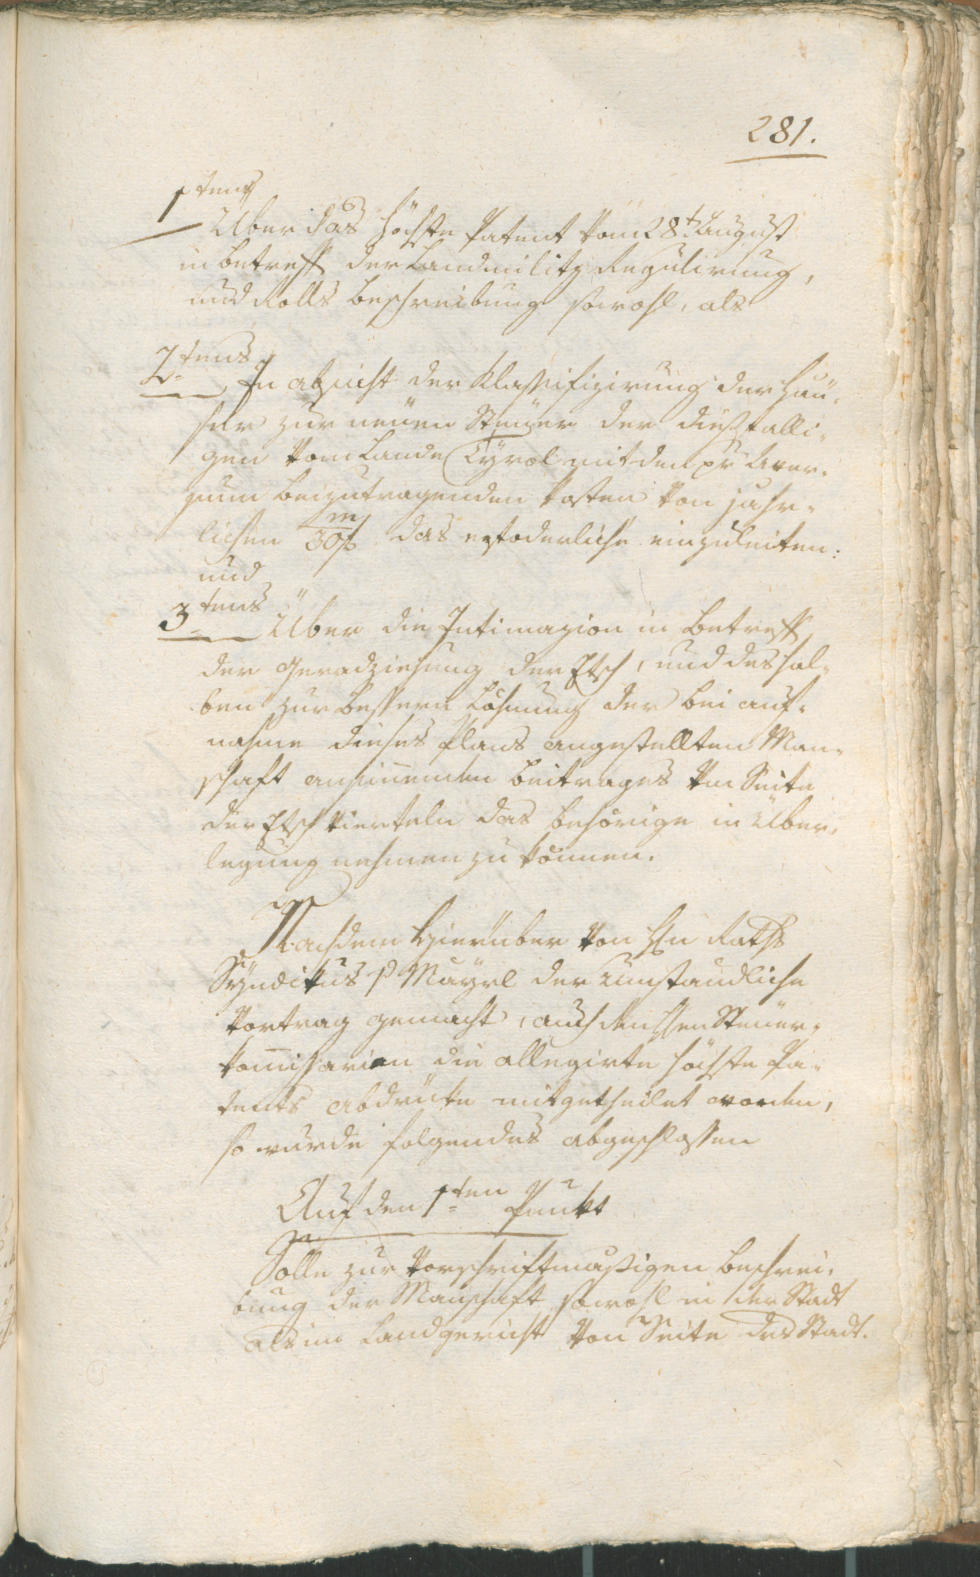 281.
1tens
Über das höchste Patent vom 28t August
in betreff der Landmilitz Regulirung,
und Rolls beschreibung sowohl, als
2tens
In absicht der Klassifizirung der Häu¬
ser zur neüen Steüer der dießfalli¬
gen vom Lande Tÿrol mit den pr Aver¬
sum beizutragenden kosten von jähr¬
lichen 30m/f das erfoderliche einzuleiten:
und
3tens Über die Intimazion in betreff
der Geradziehung der Etsch, und deshal¬
ben zur bessern Löhnung der bei auf¬
nahme dieses Plans angestellten Man¬
schaft ansinnenden beitrages von Seite
der Etsch vierteln das behörige in Über¬
legung nehmen zu können.
Nachdem hierüber von H̅n Raths
Sÿndikus v Maÿrl der umständliche
Vortrag gemacht, auch den H̅en Steüer¬
kom̅issarien die allegirte höchste Pa¬
tents abdrüke mitgetheilet worden,
so wurde folgendes abgeschlossen
Auf den 1ten Punkt
Solle zur vorschriftmäßigen beschrei¬
bung der Manschaft sowohl in der Stadt
als im Landgericht von Seite des Stadt¬